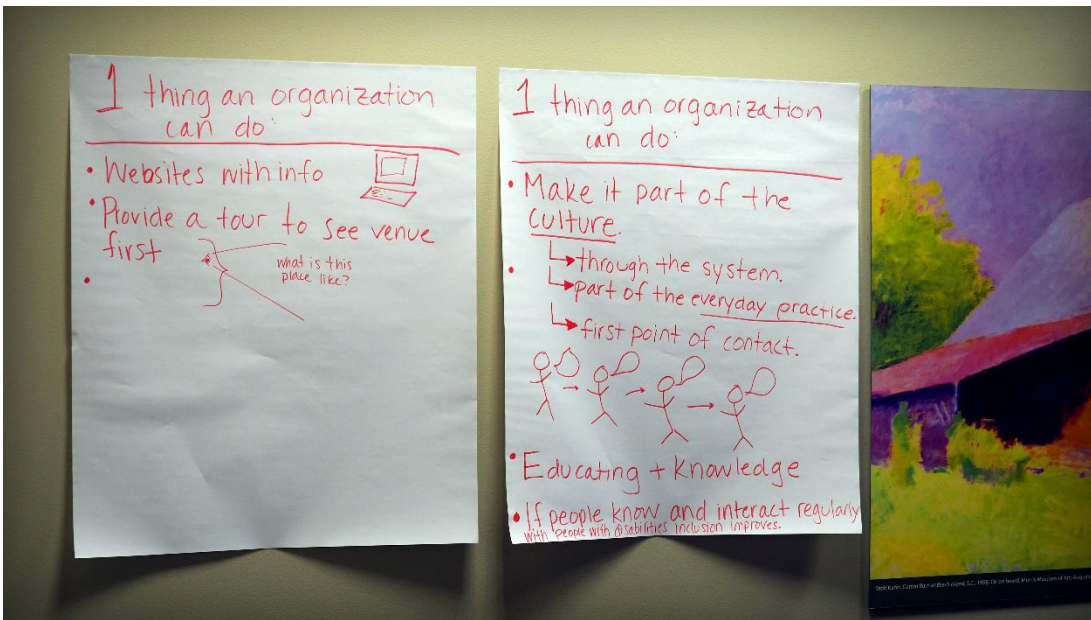 1 thing an organization
can do:
• Websites with info
• Provide a tour to see venue
first
what is this
place like?
•
1 thing an organization
can do:
• Make it part of the
culture.
• through the system.
part of the everyday practice.
first point of contact.
• Educating + Knowledge
• If people know and interact regularly
with people with disabilities inclusion improves.
Wolf Kahn,